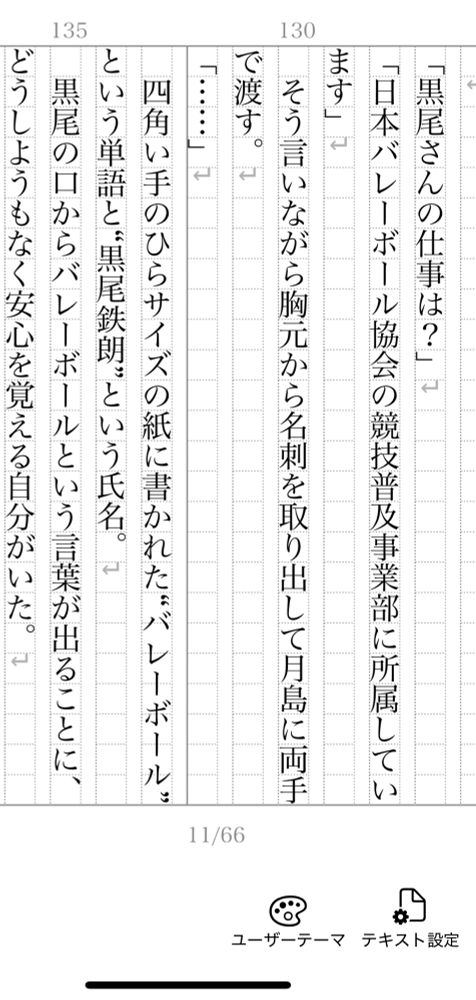 135
130
「黒尾さんの仕事は？」
「日本バレーボール協会の競技普及事業部に所属してい
ます」
　そう言いながら胸元から名刺を取り出して月島に両手
で渡す。
「……」
　四角い手のひらサイズの紙に書かれた“バレーボール”
という単語と“黒尾鉄朗”という氏名。
　黒尾の口からバレーボールという言葉が出ることに、
どうしようもなく安心を覚える自分がいた。
11/66
ユーザーテーマ
テキスト設定